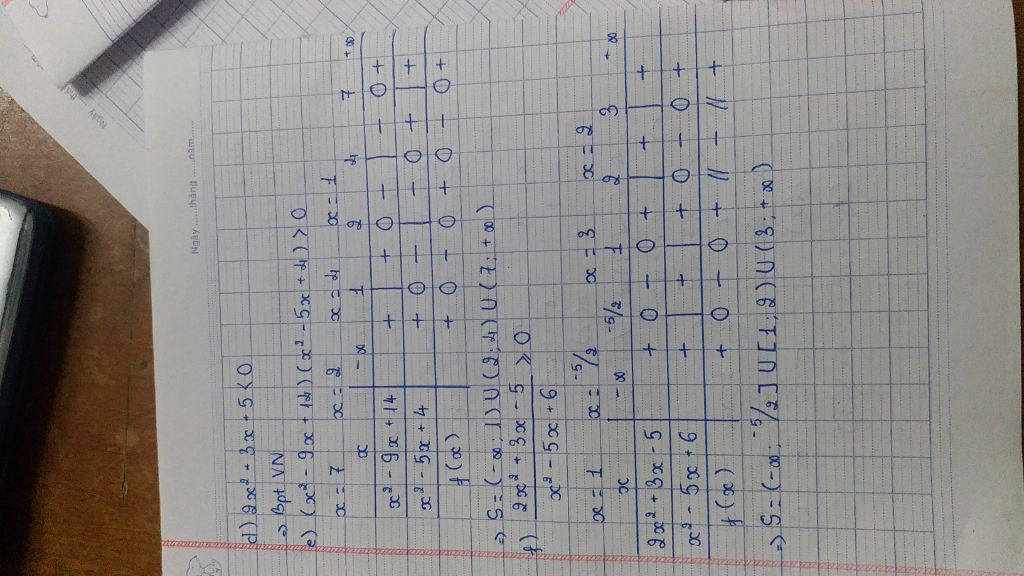 Ngày ......tháng ......năm......
d) 2x² + 3x + 5 < 0
⇒ Bpt VN
e) (x² - 9x + 14) (x² - 5x + 4) > 0
x = 7 x = 2 x = 4 x = 1
x -∞ 1 2 4 7 +∞
x² - 9x + 14 + | + 0 - | - 0 +
x² - 5x + 4 + 0 - | - 0 + | +
f(x) + 0 - 0 + 0 - 0 +
⇒ S = (-∞; 1) U (2; 4) U (7; +∞)
f) 2x² + 3x - 5 ⩾ 0
x² - 5x + 6
x = 1 x = -5/2 x = 3 x = 2
x -∞ -5/2 1 2 3 +∞
2x² + 3x - 5 + 0 - 0 + | + | +
x² - 5x + 6 + | + | + 0 - 0 +
f(x) + 0 - 0 + || - || +
⇒ S = (-∞; -5/2] U [1; 2) U (3; +∞)
Ngày